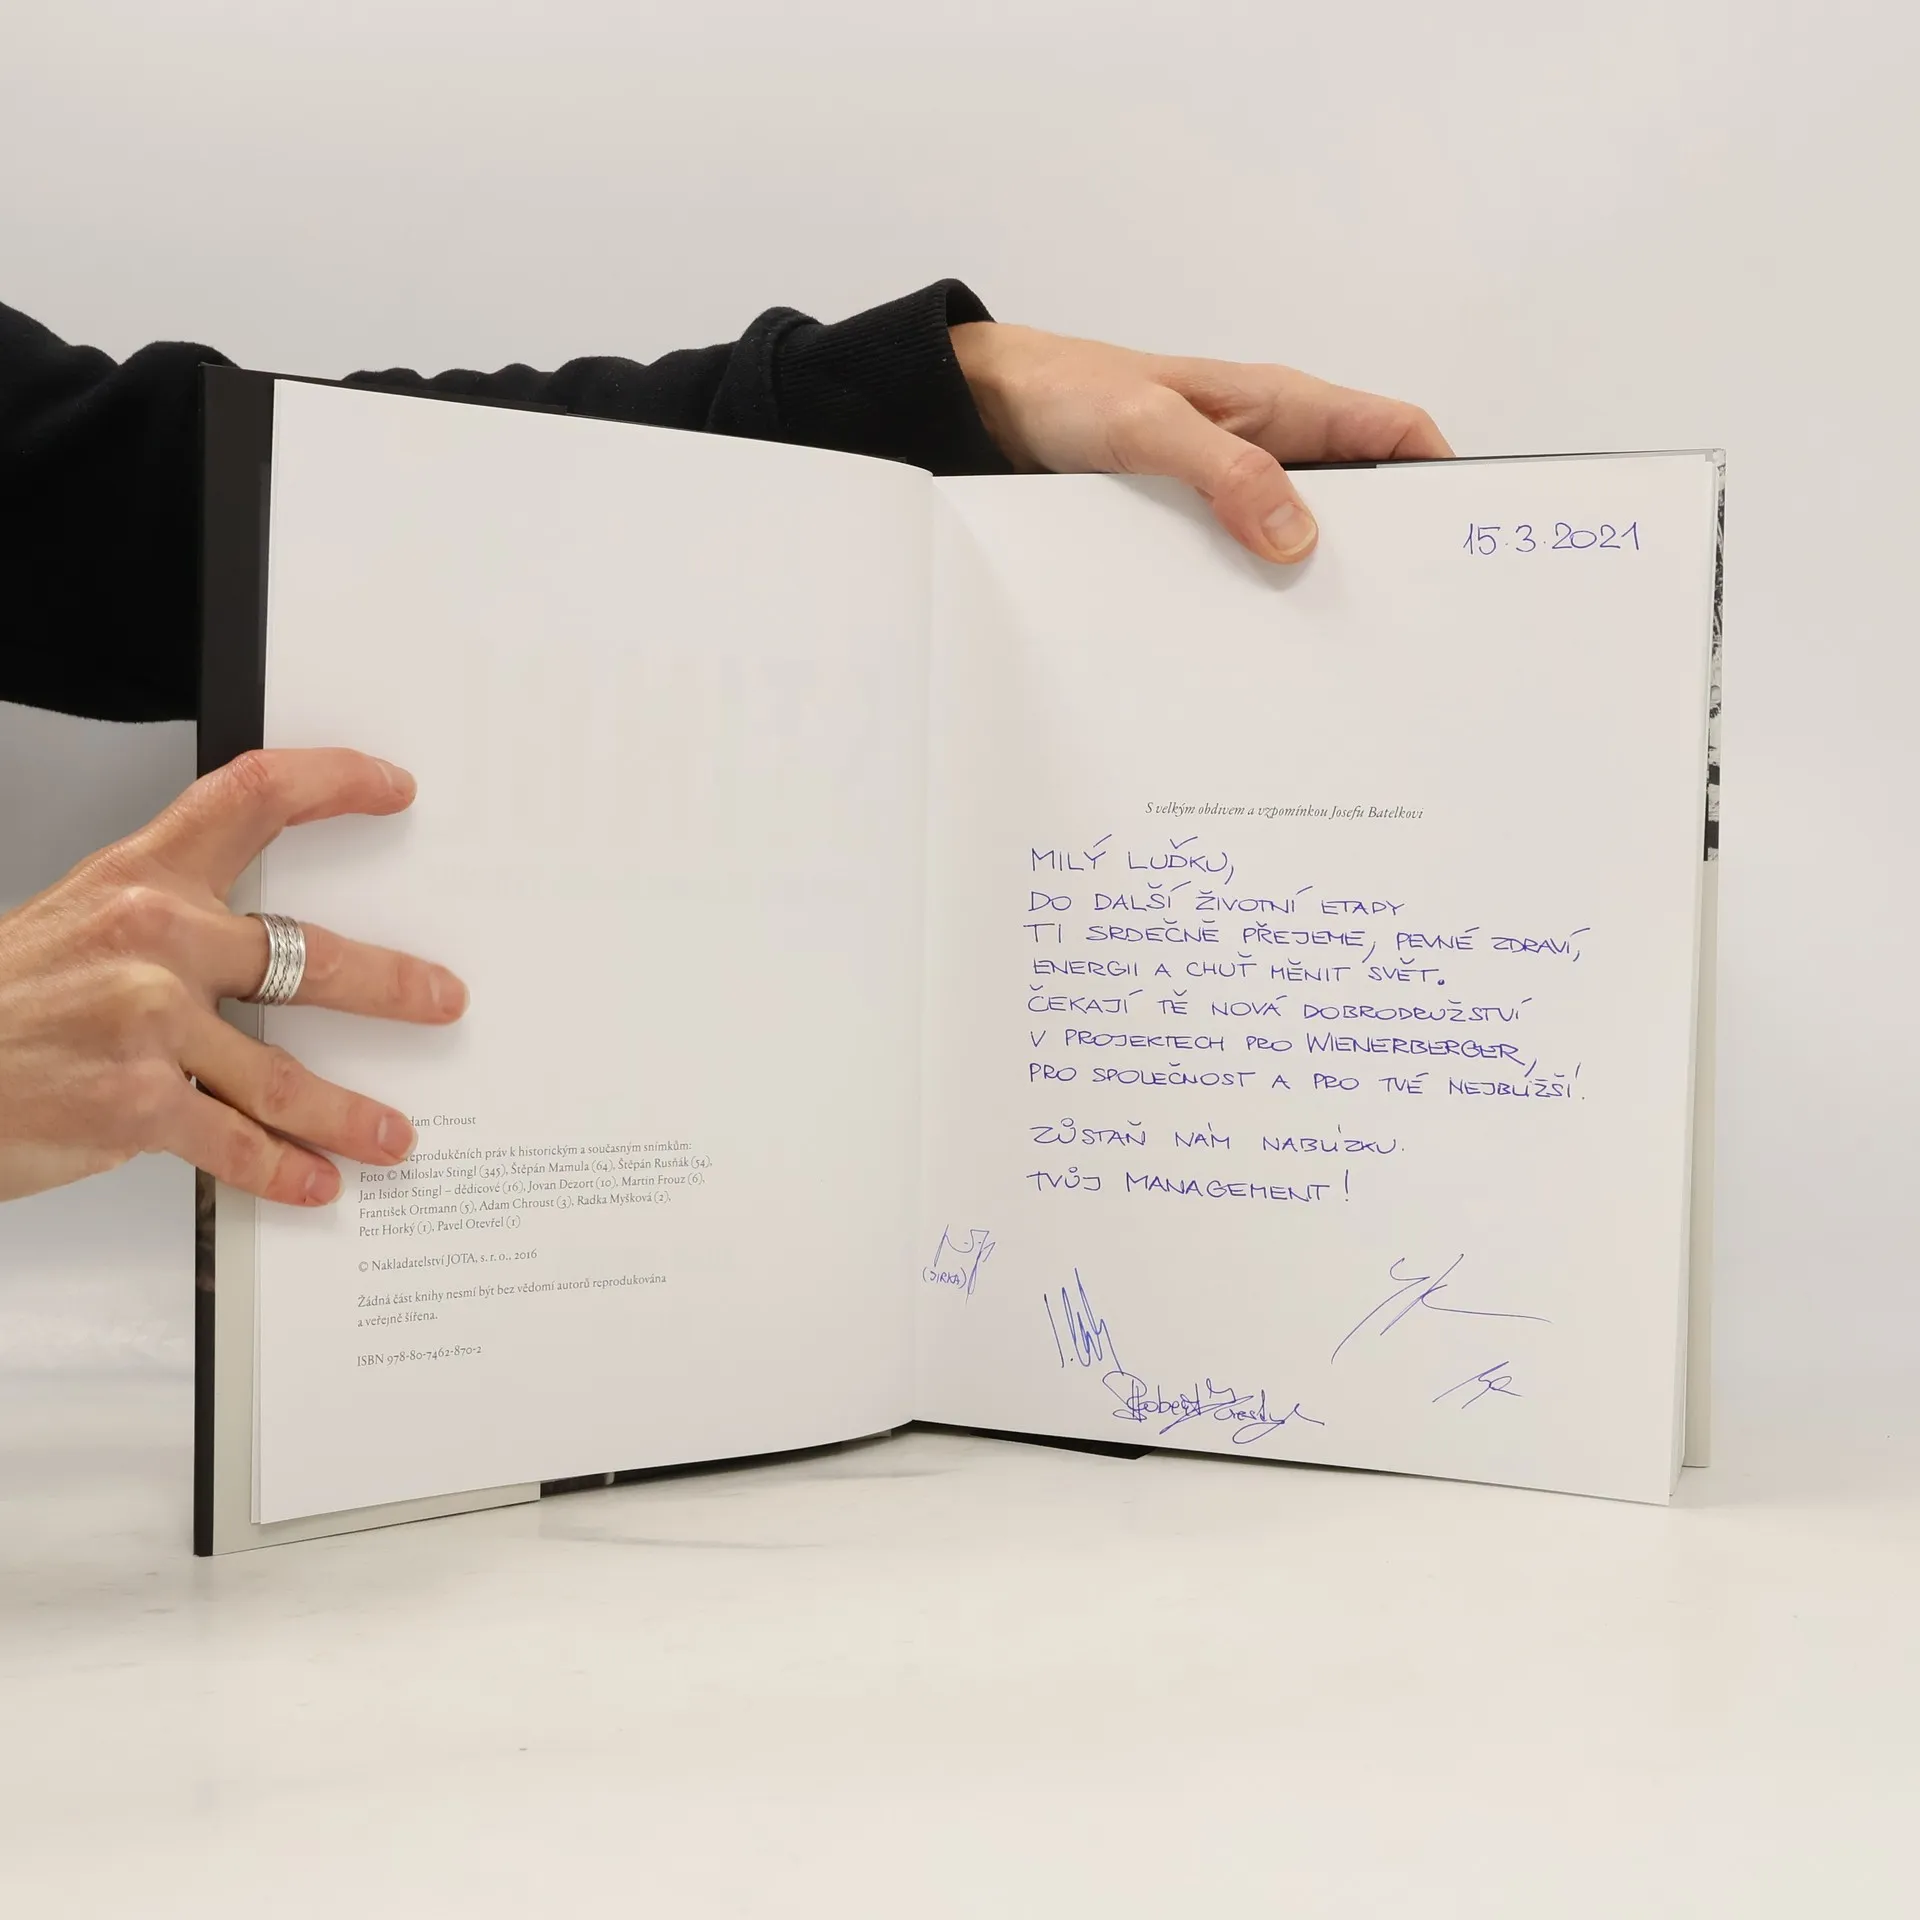 dam Chroust
reprodukčních práv k historickým a současným snímkům:
Foto © Miloslav Stingl (345), Štěpán Mamula (64), Štěpán Rusňák (54),
Jan Isidor Stingl – dědicové (16), Jovan Dezort (10), Martin Frouz (6),
František Ortmann (5), Adam Chroust (3), Radka Myšková (2),
Petr Horký (1), Pavel Otevřel (1)
© Nakladatelství JOTA, s. r. o., 2016
Žádná část knihy nesmí být bez vědomí autorů reprodukována
a veřejně šířena.
ISBN 978-80-7462-870-2
15.3.2021
S velkým obdivem a vzpomínkou Josefu Batelkovi
MILÝ LUĎKU,
DO DALŠÍ ŽIVOTNÍ ETAPY
TI SRDEČNĚ PŘEJEME, PEVNÉ ZDRAVÍ,
ENERGII A CHUŤ MĚNIT SVĚT.
ČEKAJÍ TĚ NOVÁ DOBRODRUŽSTVÍ
V PROJEKTECH PRO WIENERBERGER,
PRO SPOLEČNOST A PRO TVÉ NEJBLIŽŠÍ!
ZŮSTAŇ NÁM NABLÍZKU.
TVŮJ MANAGEMENT!
(JIRKA)
Robert